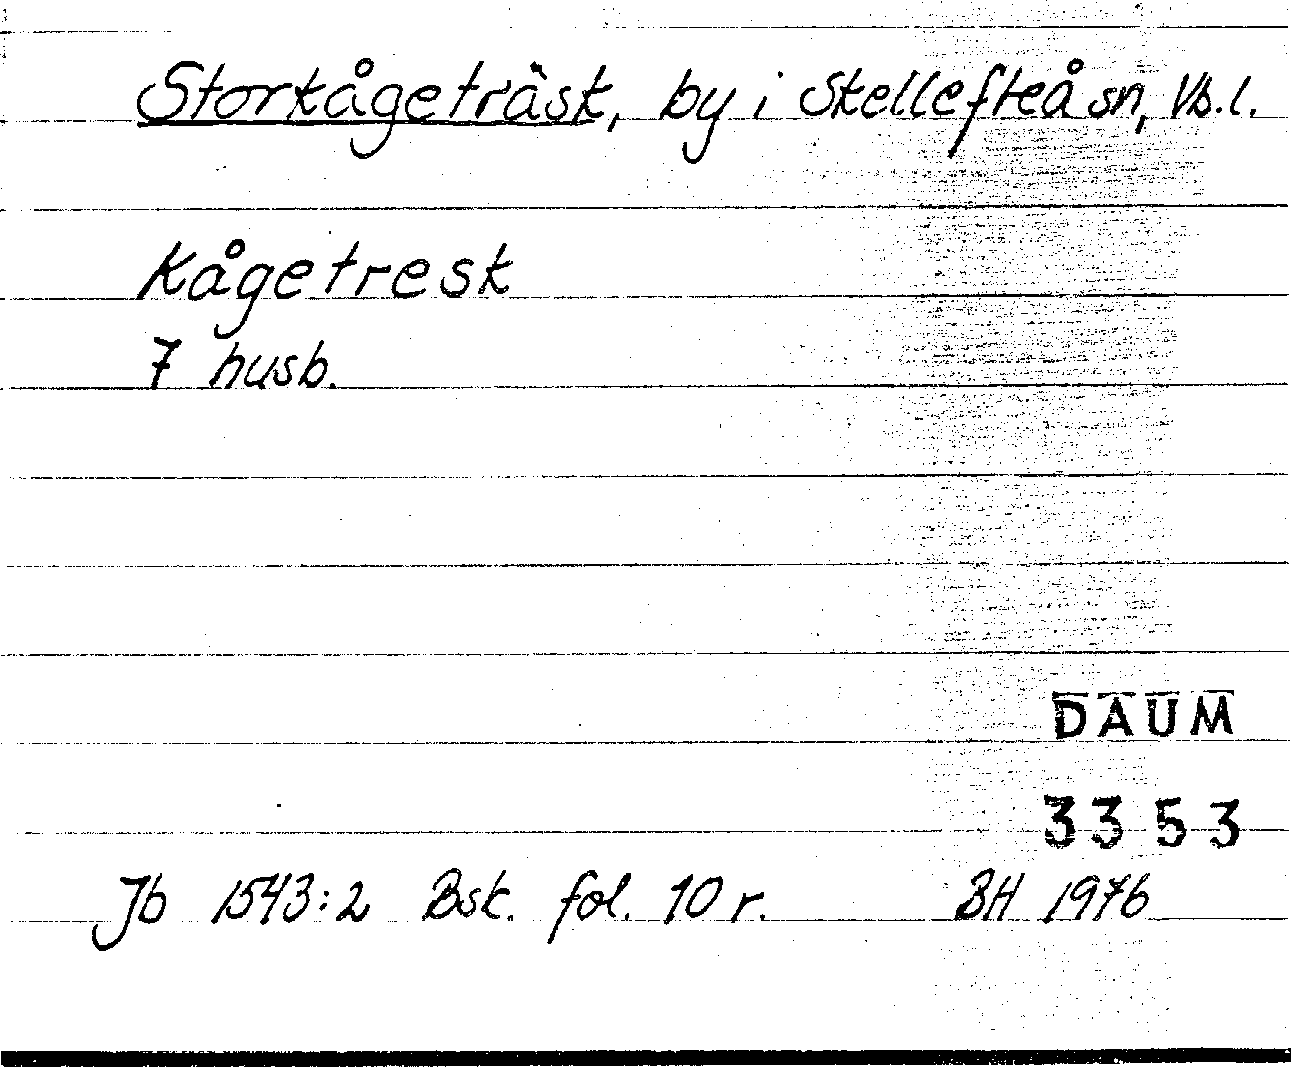 Storkågeträsk, by i Skellefteå sn, Vb.l.
Kågetresk
7 husb.
DAUM
3353
Jb 1543:2 Bsk. fol. 10 r. BH 1976